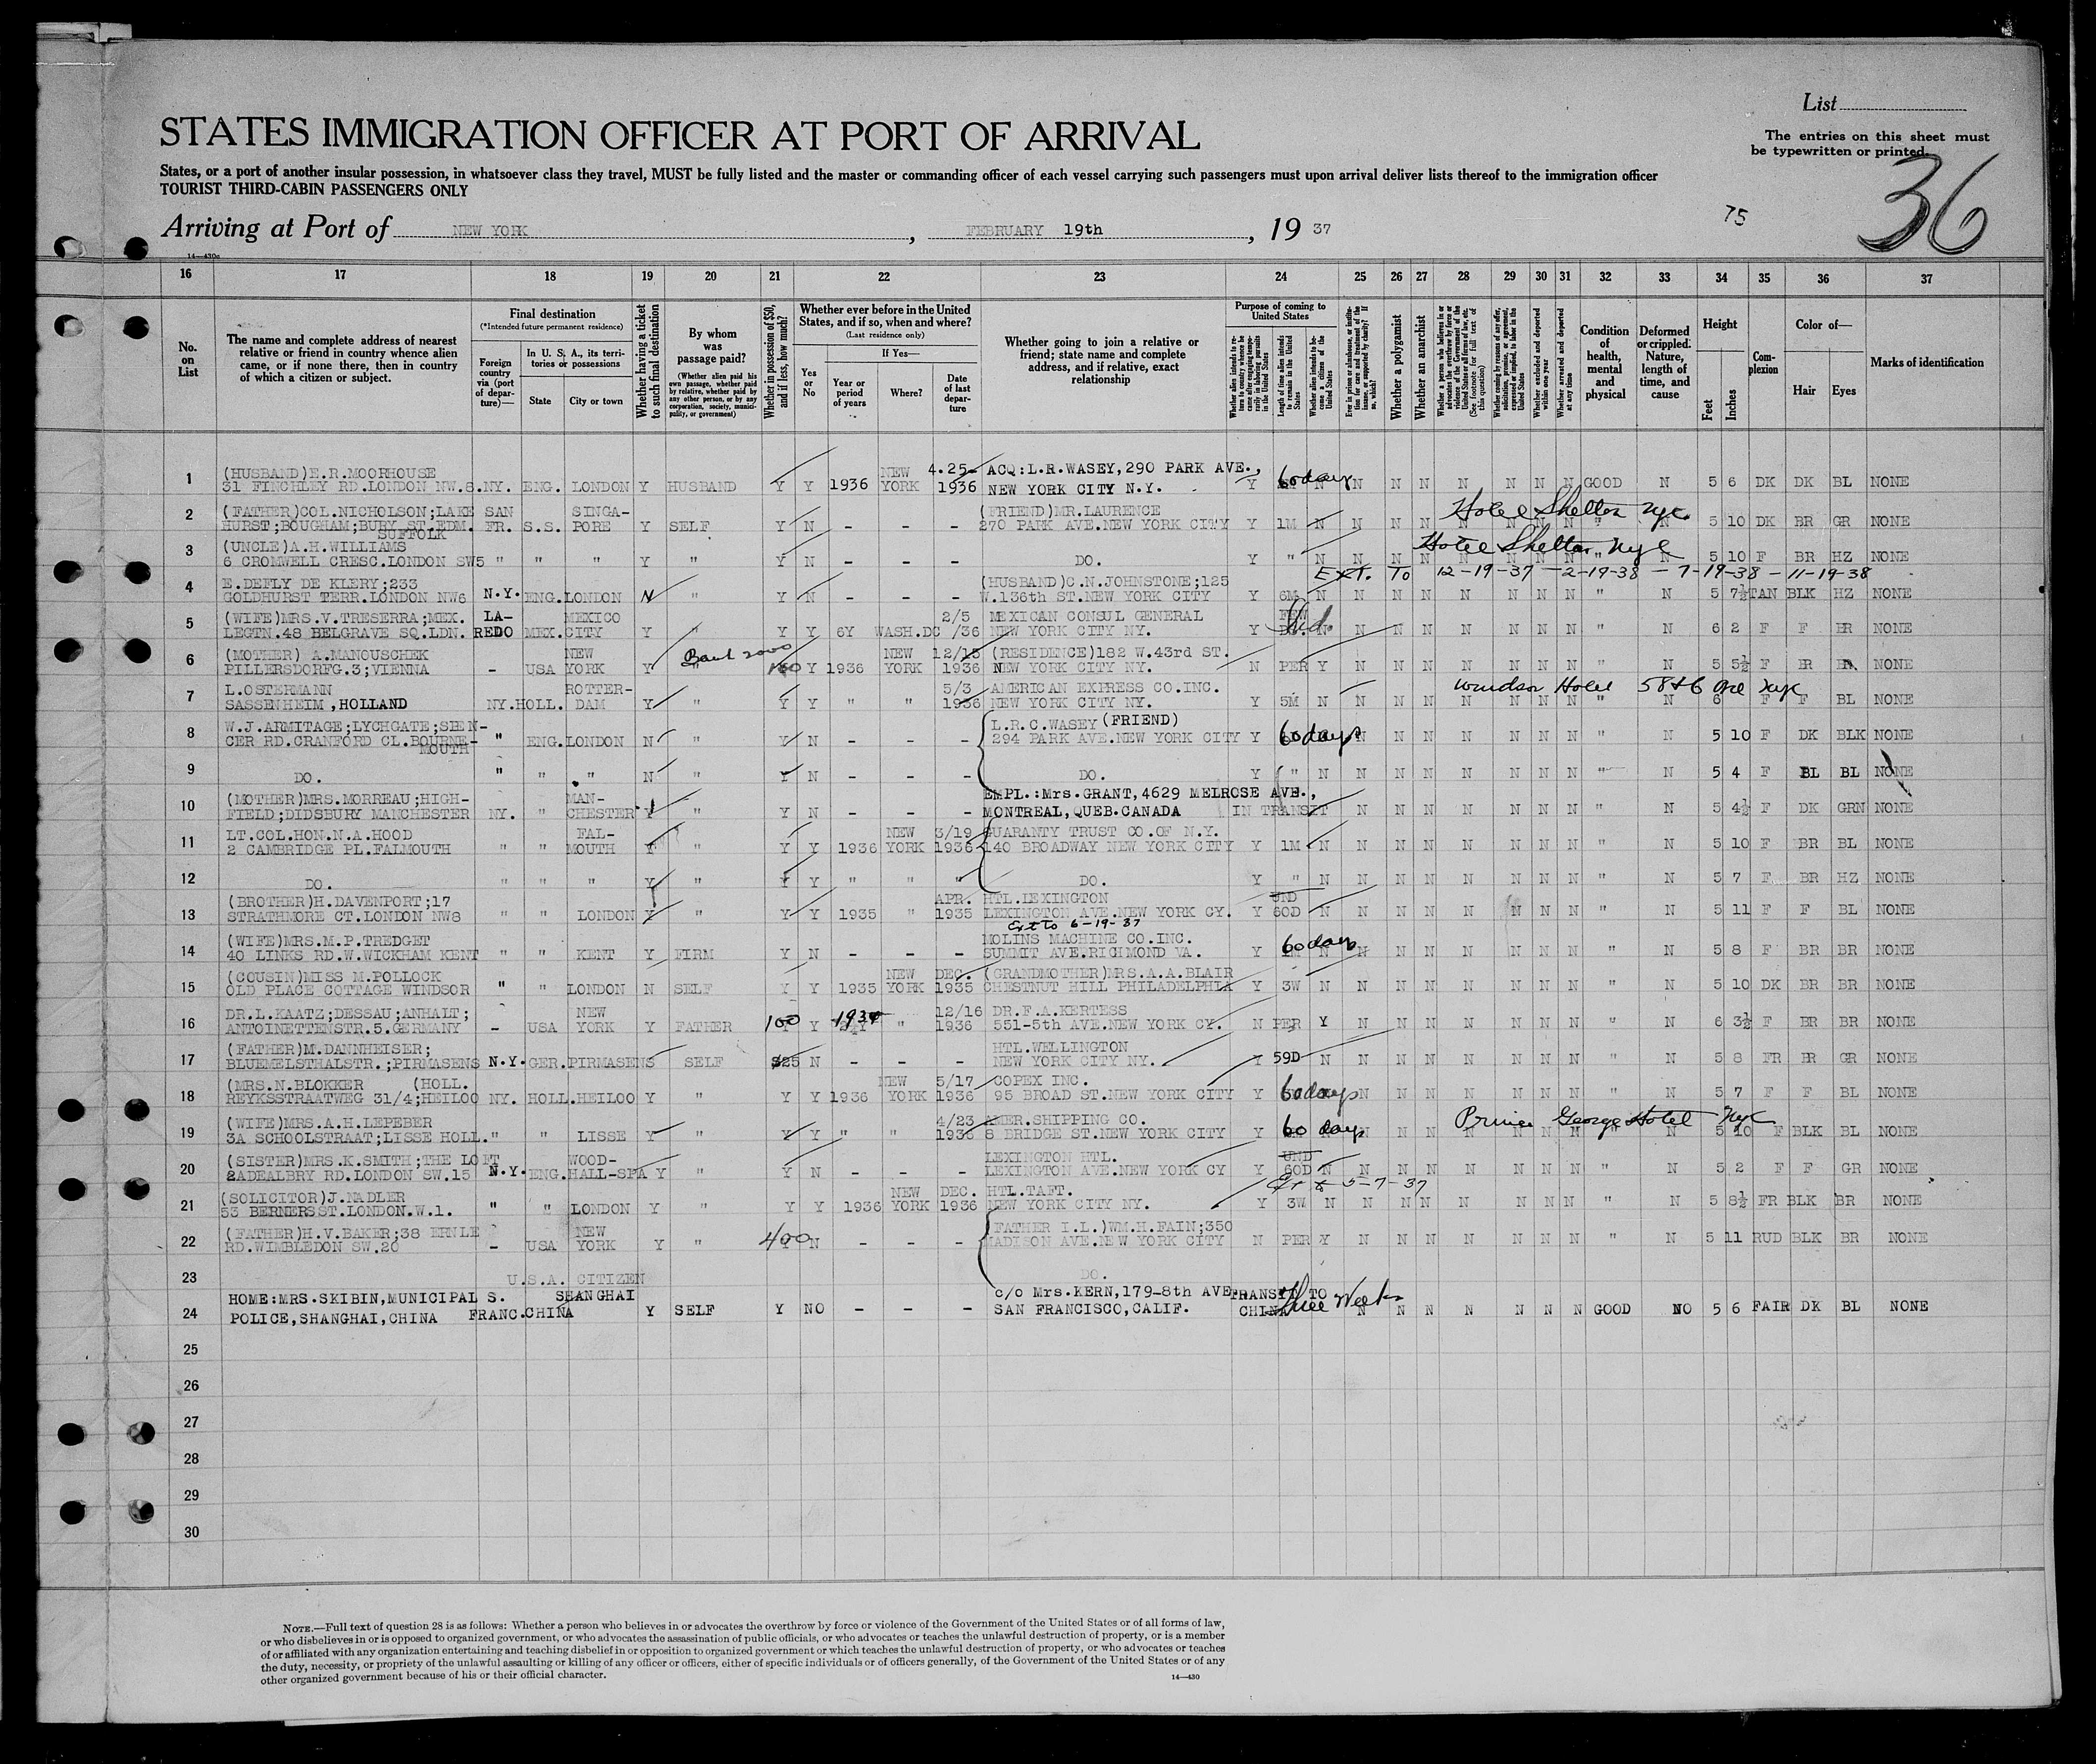 List
STATES IMMIGRATION OFFICER AT PORT OF ARRIVAL
The entries on this sheet must
be typewritten or printed.
36
States, or a port of another insular possession, in whatsoever class they travel, MUST be fully listed and the master or commanding officer of each vessel carrying such passengers must upon arrival deliver lists thereof to the immigration officer
TOURIST THIRD-CABIN PASSENGERS ONLY
75
Arriving at Port of NEW YORK, FEBRUARY 19th, 19 37
14—430c
16 17 18 19 20 21 22 23 24 25 26 27 28 29 30 31 32 33 34 35 36 37
No. on List
The name and complete address of nearest relative or friend in country whence alien came, or if none there, then in country of which a citizen or subject.
Final destination
(*Intended future permanent residence)
Foreign country via (port of departure)—
In U. S. A., its territories or possessions
State
City or town
Whether having a ticket to such final destination
By whom was passage paid?
(Whether alien paid his own passage, whether paid by relative, whether paid by any other person, or by any corporation, society, municipality, or government)
Whether in possession of $50, and if less, how much?
Whether ever before in the United States, and if so, when and where?
(Last residence only)
If Yes—
Yes or No
Year or period of years
Where?
Date of last departure
Whether going to join a relative or friend; state name and complete address, and if relative, exact relationship
Purpose of coming to United States
Length of time alien intends to remain in the United States
Whether alien intends to become a citizen of the United States
Whether a polygamist
Whether an anarchist
Whether excluded and deported within one year
Whether arrested and deported at any time
Condition of health, mental and physical
Deformed or crippled. Nature, length of time, and cause
Height
Feet
Inches
Complexion
Color of—
Hair
Eyes
Marks of identification
1 (HUSBAND)E.R.MOORHOUSE NEW 4.25- ACQ:L.R.WASEY,290 PARK AVE.,
31 FINCHLEY RD.LONDON NW.8. NY. ENG. LONDON Y HUSBAND Y Y 1936 YORK 1936 NEW YORK CITY N.Y. Y 60 days N N N N N N N GOOD N 5 6 DK DK BL NONE
2 (FATHER)COL.NICHOLSON;LAKE SAN SINGA- (FRIEND)MR.LAURENCE Hotel Shelton Nyc
HURST;BOUGHAM;BURY ST.EDM. FR. S.S. PORE Y SELF Y N - - - 270 PARK AVE.NEW YORK CITY Y 1M N N N N N N N N " N 5 10 DK BR GR NONE
SUFFOLK
3 (UNCLE)A.H.WILLIAMS Hotel Shelton Nyc
6 CROMWELL CRESC.LONDON SW5 " " " Y " Y N - - - DO. Y " N N N N N N N N " N 5 10 F BR HZ NONE
Ext. To 12-19-37 - 2-19-38 - 7-19-38 - 11-19-38
4 E.DEFLY DE KLERY;233 (HUSBAND)C.N.JOHNSTONE;125
GOLDHURST TERR.LONDON NW6 N.Y. ENG. LONDON N " Y N - - - W.136th ST.NEW YORK CITY Y 6M N N N N N N N N " N 5 7½ TAN BLK HZ NONE
5 (WIFE)MRS.V.TRESERRA;MEX. LA- MEXICO 2/5 MEXICAN CONSUL GENERAL FEW
LEGTN.48 BELGRAVE SQ.LDN. REDO MEX. CITY Y " Y Y 6Y WASH.DC /36 NEW YORK CITY NY. Y N N N N N N N N " N 6 2 F F BR NONE
6 (MOTHER) A.MANOUSCHEK NEW 2000 NEW 12/15 (RESIDENCE)182 W.43rd ST.
PILLERSDORFG.3;VIENNA - USA YORK Y " 100 Y 1936 YORK 1936 NEW YORK CITY NY. N PER Y N N N N N N N " N 5 5½ F BR NONE
7 L.OSTERMANN ROTTER- 5/3 AMERICAN EXPRESS CO.INC. Windsor Hotel 58 & 6 Ave Nyc
SASSENHEIM,HOLLAND NY. HOLL. DAM Y " Y Y " " 1936 NEW YORK CITY NY. Y 5M N N N N N N N N " N 6 F F BL NONE
8 W.J.ARMITAGE;LYCHGATE;SPEN- L.R.C.WASEY (FRIEND)
CER RD.CRANFORD CL.BOURNE- " ENG. LONDON N " Y N - - - 294 PARK AVE.NEW YORK CITY Y 60 days N N N N N N N " N 5 10 F DK BLK NONE
MOUTH
9 DO. " " " N " Y N - - - DO. Y " N N N N N N N N " N 5 4 F BL BL NONE
10 (MOTHER)MRS.MORREAU;HIGH- MAN- EMPL.:Mrs.GRANT,4629 MELROSE AVE.,
FIELD;DIDSBURY MANCHESTER NY. " CHESTER Y " Y N - - - MONTREAL,QUEB.CANADA IN TRANSIT N N N N N N N " N 5 4½ F DK GRN NONE
11 LT.COL.HON.N.A.HOOD FAL- NEW 3/19 GUARANTY TRUST CO.OF N.Y.
2 CAMBRIDGE PL.FALMOUTH " " MOUTH Y " Y Y 1936 YORK 1936 140 BROADWAY NEW YORK CITY Y 1M N N N N N N N N " N 5 10 F BR BL NONE
12 DO. " " " Y " Y Y " " " DO. Y " N N N N N N N N " N 5 7 F BR HZ NONE
13 (BROTHER)H.DAVENPORT;17 APR. HTL.LEXINGTON UND
STRATHMORE CT.LONDON NW8 " " LONDON Y " Y Y 1935 " 1935 LEXINGTON AVE.NEW YORK CY. Y 60D N N N N N N N N " N 5 11 F F BL NONE
Ext to 6-19-37
14 (WIFE)MRS.M.P.TREDGET MOLINS MACHINE CO.INC.
40 LINKS RD.W.WICKHAM KENT " " KENT Y FIRM Y N - - - SUMMIT AVE.RICHMOND VA. Y 60 days N N N N N N N N " N 5 8 F BR BR NONE
15 (COUSIN)MISS M.POLLOCK NEW DEC. (GRANDMOTHER)MRS.A.A.BLAIR
OLD PLACE COTTAGE WINDSOR " " LONDON N SELF Y Y 1935 YORK 1935 CHESTNUT HILL PHILADELPHIA Y 3W N N N N N N N N " N 5 10 DK BR BR NONE
16 DR.L.KAATZ;DESSAU;ANHALT; NEW 12/16 DR.F.A.KERTESS
ANTOINETTENSTR.5.GERMANY - USA YORK Y FATHER 100 Y " 1936 551-5th AVE.NEW YORK CY. N PER Y N N N N N N N " N 6 3½ F BR BR NONE
17 (FATHER)M.DANNHEISER; HTL.WELLINGTON
BLUEMELSTHALSTR.;PIRMASENS N.Y. GER. PIRMASENS SELF $25 N - - - NEW YORK CITY NY. Y 59D N N N N N N N N " N 5 8 FR BR GR NONE
18 (MRS.N.BLOKKER (HOLL. NEW 5/17 COPEX INC.
REYKSSTRAATWEG 31/4;HEILOO NY. HOLL. HEILOO Y " Y Y 1936 YORK 1936 95 BROAD ST.NEW YORK CITY Y 60 days N N N N N N N " N 5 7 F F BL NONE
19 (WIFE)MRS.A.H.LEPEBER 4/23 AMER.SHIPPING CO. Prince George Hotel Nyc
3A SCHOOLSTRAAT;LISSE HOLL. " " LISSE Y " Y Y " " 1936 8 BRIDGE ST.NEW YORK CITY Y 60 days N N N N N N N N " N 5 10 F BLK BL NONE
20 (SISTER)MRS.K.SMITH;THE LOFT WOOD- LEXINGTON HTL. UND
2ADEALBRY RD.LONDON SW.15 N.Y. ENG. HALL-SPA Y " Y N - - - LEXINGTON AVE.NEW YORK CY Y 60D N N N N N N N N " N 5 2 F F GR NONE
5-7-37
21 (SOLICITOR)J.NADLER NEW DEC. HTL.TAFT.
53 BERNERS ST.LONDON.W.1. " " LONDON Y " Y Y 1936 YORK 1936 NEW YORK CITY NY. Y 3W N N N N N N N N " N 5 8½ FR BLK BR NONE
22 (FATHER)H.V.BAKER;38 ERNLE NEW (FATHER I.L.)WM.H.FAIN;350
RD.WIMBLEDON SW.20 - USA YORK Y " 400 N - - - MADISON AVE.NEW YORK CITY N PER Y N N N N N N N " N 5 11 RUD BLK BR NONE
23 U.S.A. CITIZEN DO.
24 HOME:MRS.SKIBIN,MUNICIPAL S. SHANGHAI c/o Mrs.KERN,179-8th AVE. TRANSIT TO
POLICE,SHANGHAI,CHINA FRANC. CHINA Y SELF Y NO - - - SAN FRANCISCO,CALIF. CHINA Three Weeks N N N N N N N GOOD NO 5 6 FAIR DK BL NONE
25
26
27
28
29
30
NOTE.—Full text of question 28 is as follows: Whether a person who believes in or advocates the overthrow by force or violence of the Government of the United States or of all forms of law,
or who disbelieves in or is opposed to organized government, or who advocates the assassination of public officials, or who advocates or teaches the unlawful destruction of property, or is a member
of or affiliated with any organization entertaining and teaching disbelief in or opposition to organized government or which teaches the unlawful destruction of property, or who advocates or teaches
the duty, necessity, or propriety of the unlawful assaulting or killing of any officer or officers, either of specific individuals or of officers generally, of the Government of the United States or of any
other organized government because of his or their official character.
14—430